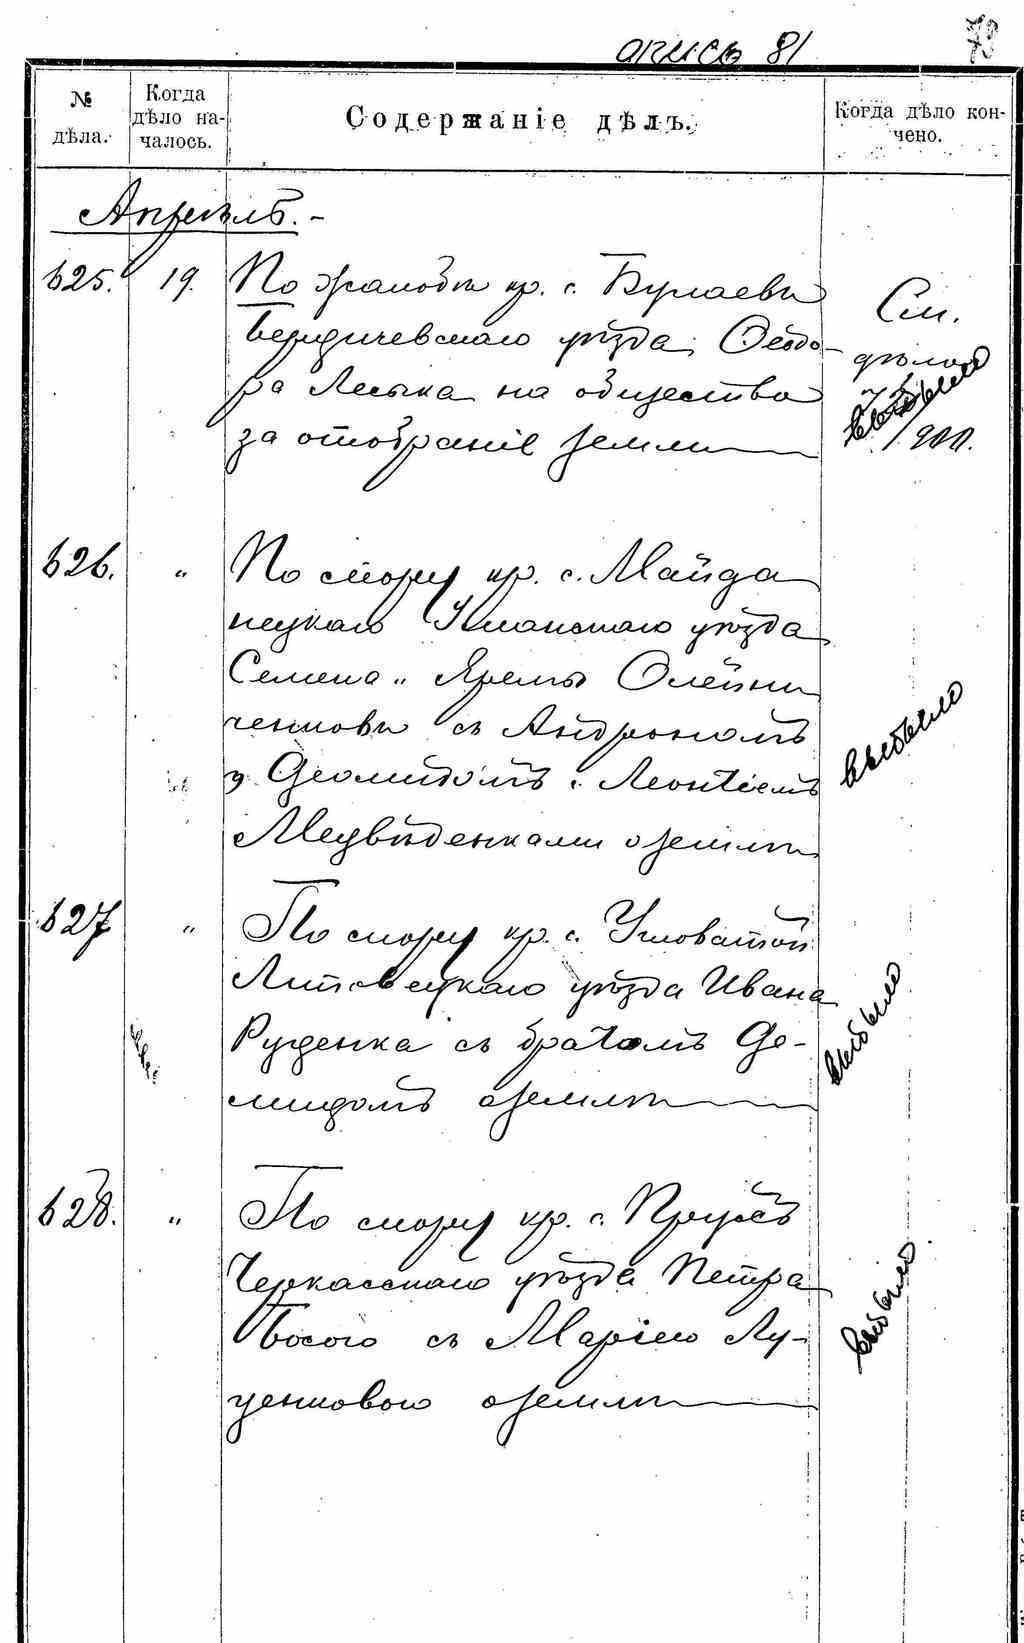 опись 81
79
№ дѣла.
Когда дѣло началось.
Содержаніе дѣлъ.
Когда дѣло кончено.
Апрѣль.-
625. 19. По жалобѣ кр. с. Бураевы
Бердичевскаго уѣзда Ѳеодо-
ра Лесыка на общество
за отобраніе земли
См.
дѣло
выбыло
1900.
626. " По спору кр. с. Майда
нецкаго Уманскаго уѣзда
Семена и Яремы Олейни
ченковы съ Андрономъ
Деомидомъ и Леонтіемъ
Медвѣденками о земли
выбыло
627 " По спору кр. с. Угловатой
Липовецкаго уѣзда Ивана
Руденка съ братомъ Де-
мидомъ о земли
выбыло
628. " По спору кр. с.
Черкасскаго уѣзда Петра
Босого съ Маріею Лу-
ценковою о земли
выбыло